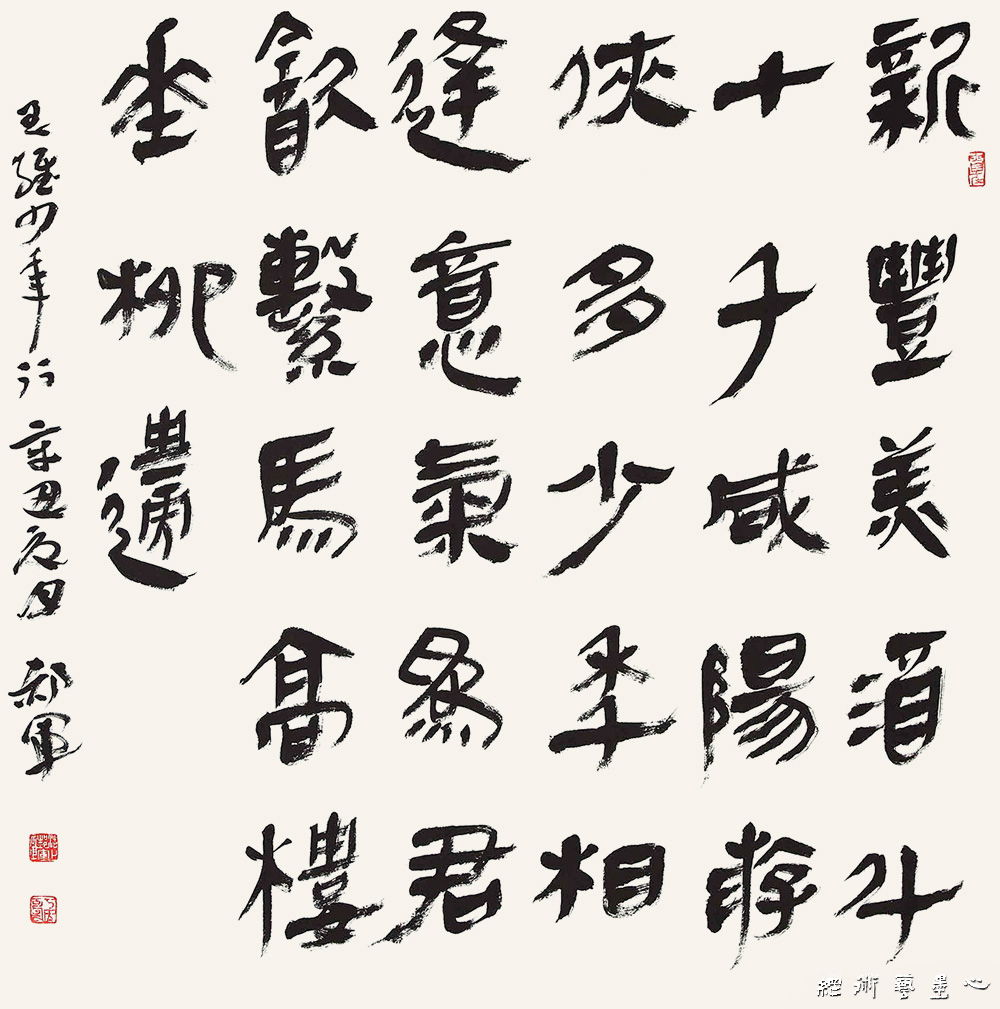 新豐美酒斗
十千咸陽游
俠多少年相
逢意氣為君
飲繫馬高樓
垂柳邊
王維少年行 辛丑夏月
心畫藝術